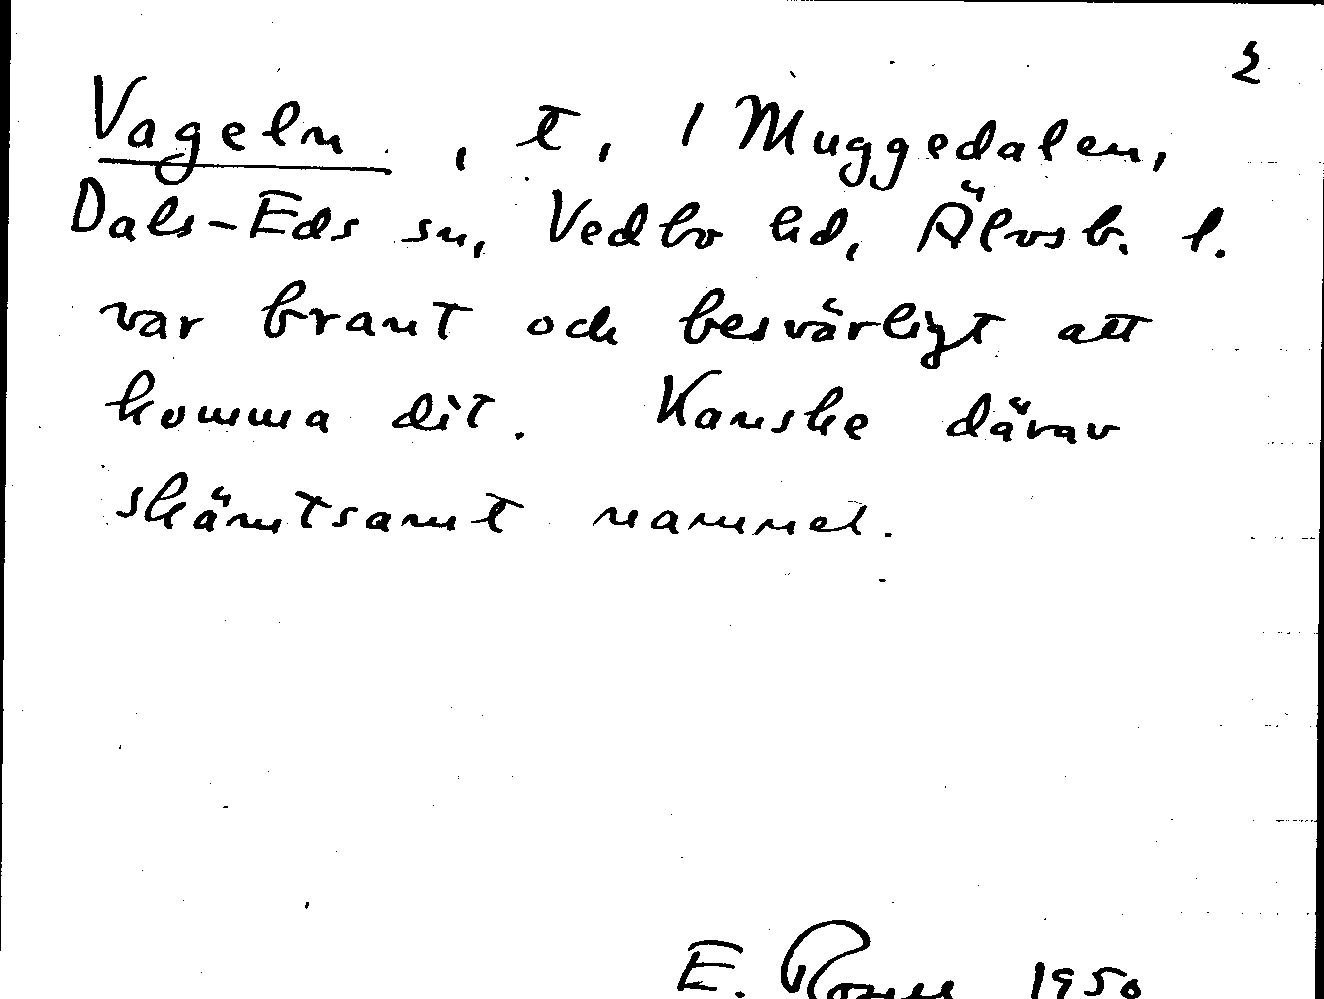 2
Vageln, t, / Muggedalen,
Dals-Eds sn, Vedbo hd, Älvsb. l.
var brant och besvärligt att
komma dit. Kanske därav
skämtsamt namnet.
E. 1950